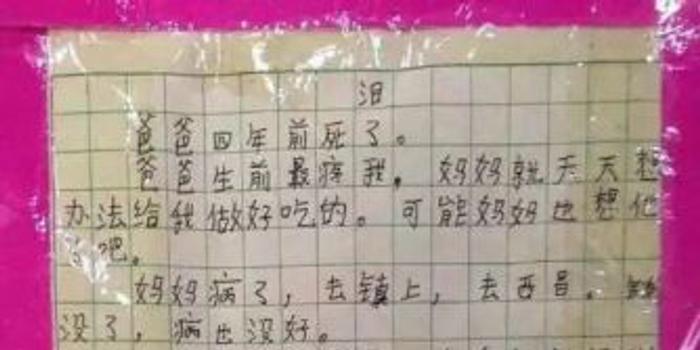 泪
爸爸四年前死了。
爸爸生前最疼我，妈妈就天天想
办法给我做好吃的。可能妈妈也想他
了吧。
妈妈病了，去镇上，去西昌。钱
没了，病也没好。